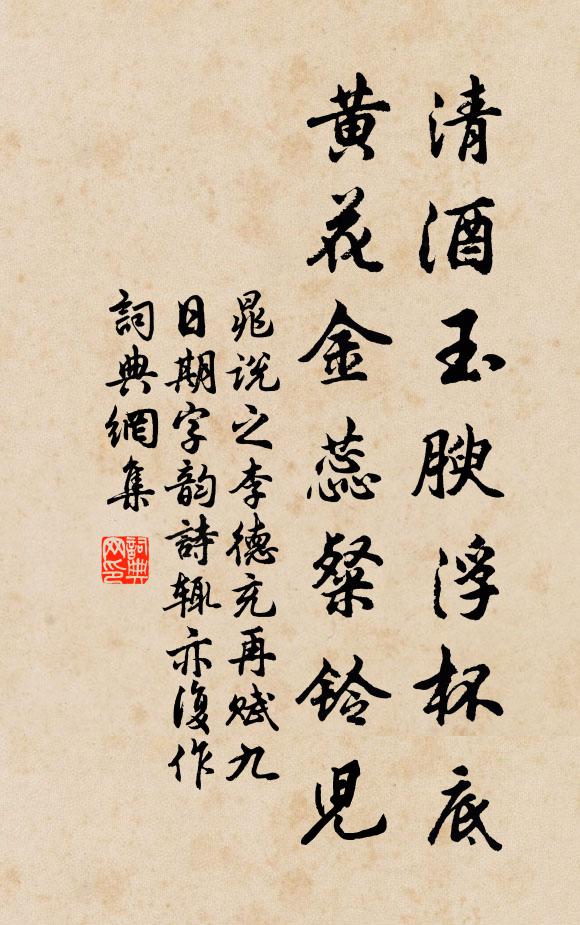 清酒玉腴浮杯底
黄花金蕊粲铃児
晁说之李德充再赋九
日期字韵詩辄亦復作
詞典網集
詞典
网印